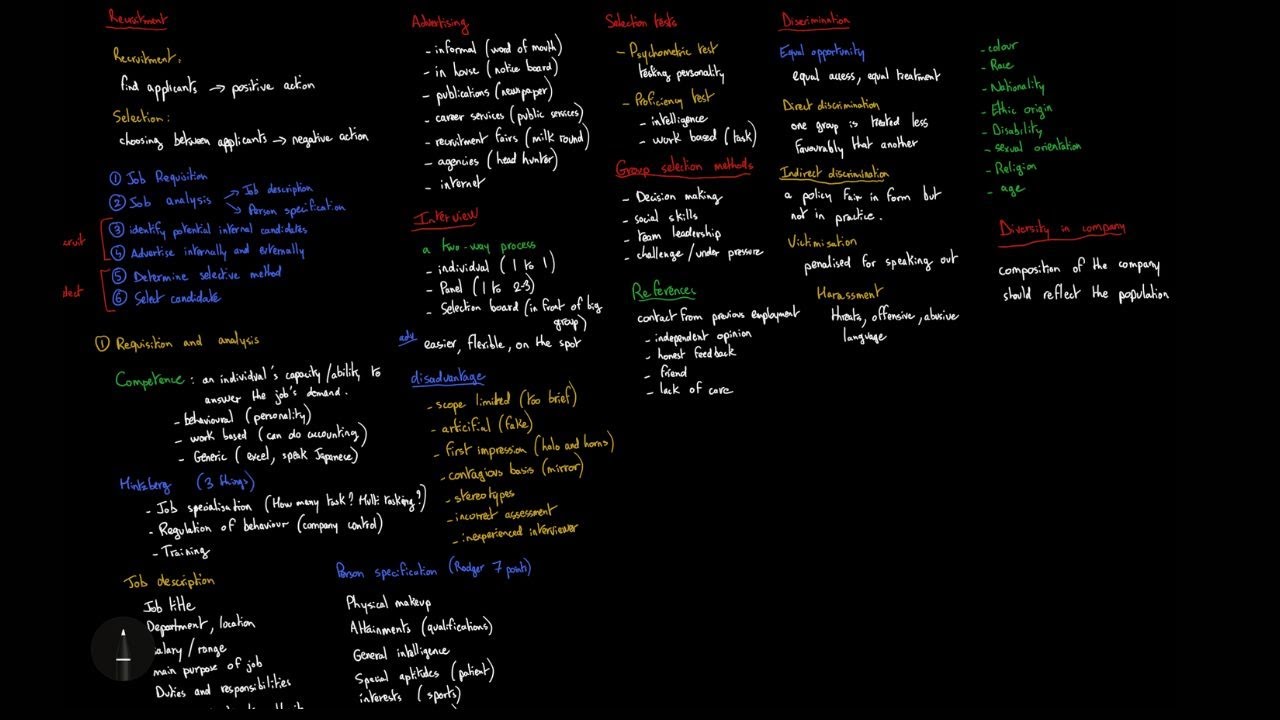 Recruitment
Recruitment:
find applicants → positive action
Selection:
choosing between applicants → negative action
① Job Requisition
② Job analysis → Job description
→ Person specification
③ identify potential internal candidates
④ Advertise internally and externally
⑤ Determine selective method
⑥ Select candidate
① Requisition and analysis
Competence: an individual's capacity/ability to
answer the job's demand.
- behavioural (personality)
- work based (can do accounting)
- Generic (excel, speak Japanese)
Mintzberg (3 things)
- Job specialisation (How many task? Multi tasking?)
- Regulation of behaviour (company control)
- Training
Job description
Job title
Department, location
salary/range
main purpose of job
Duties and responsibilities
Person specification (Rodger 7 points)
Physical makeup
Attainments (qualifications)
General intelligence
Special aptitudes (patient)
interests (sports)
Advertising
- informal (word of mouth)
- in house (notice board)
- publications (newpaper)
- career services (public services)
- recruitment fairs (milk round)
- agencies (head hunter)
- internet
Interview
a two-way process
- individual (1 to 1)
- Panel (1 to 2-3)
- Selection board (in front of big
group)
adv
easier, flexible, on the spot
disadvantage
- scope limited (too brief)
- articifial (fake)
- first impression (halo and horns)
- contagious basis (mirror)
- stereotypes
- incorrect assessment
- inexperienced interviewer
Selection tests
- Psychometric test
testing personality
- Proficiency test
- intelligence
- work based (task)
Group selection methods
- Decision making
- social skills
- team leadership
- challenge/under pressure
References
contact from previous employment
- independent opinion
- honest feedback
- friend
- lack of care
Discrimination
Equal opportunity
equal access, equal treatment
Direct discrimination
one group is treated less
favourably that another
Indirect discrimination
a policy fair in form but
not in practice.
Victimisation
penalised for speaking out
Harassment
threats, offensive, abusive
language
- colour
- Race
- Nationality
- Ethic origin
- Disability
- sexual orientation
- Religion
- age
Diversity in company
composition of the company
should reflect the population